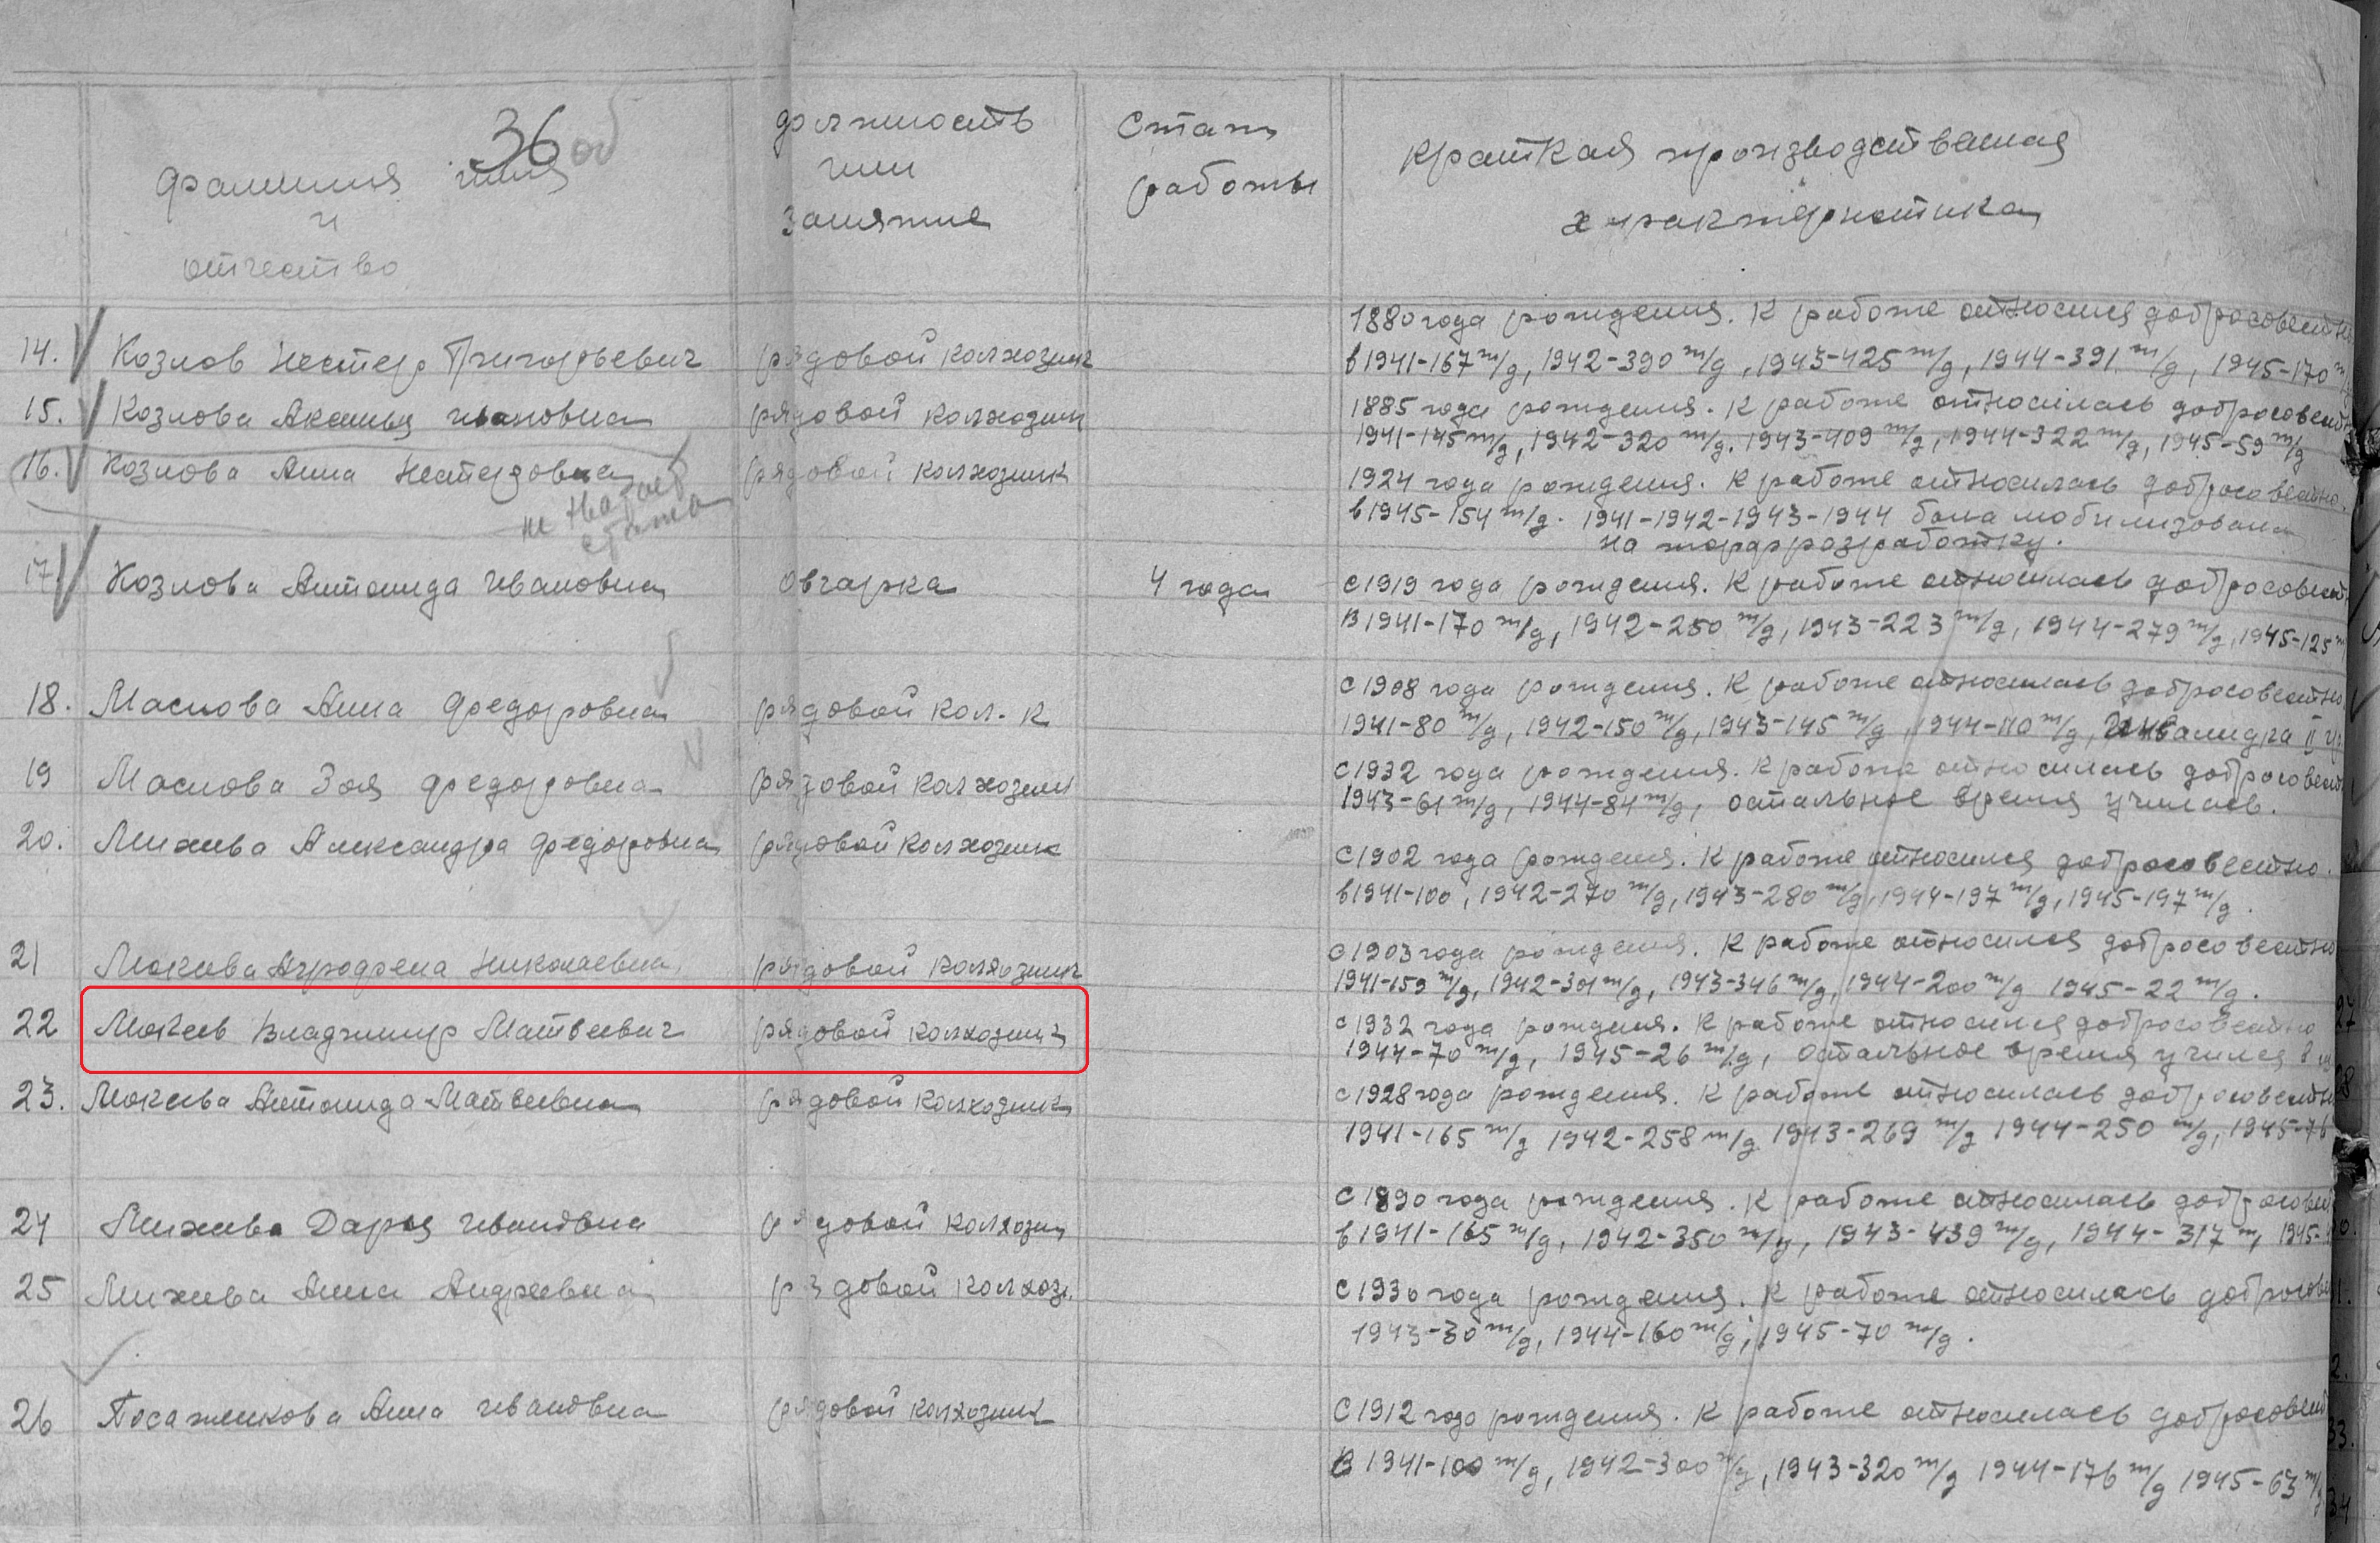 36 об
фамилия имя
и
отчество
должность
или
занятие
стаж
работы
краткая производственная
характеристика
14. Козлов Нестер Григорьевич рядовой колхозник
1880 года рождения. К работе относился добросовестно
в 1941-167 т/д, 1942-390 т/д, 1943-425 т/д, 1944-391 т/д, 1945-170 т/д
15. Козлова Аксинья Ивановна рядовой колхозник
1885 года рождения. К работе относилась добросовестн
1941-145 т/д, 1942-320 т/д. 1943-409 т/д, 1944-322 т/д, 1945-59 т/д
16. Козлова Анна Нестеровна рядовой колхозник
не
стажа
1924 года рождения. К работе относилась добросовестно.
в 1945-154 т/д. 1941-1942-1943-1944 была мобилизована
на торфразработку.
17. Козлова Антонида Ивановна овчарка 4 года
с 1919 года рождения. К работе относилась добросовест
В 1941-170 т/д, 1942-250 т/д, 1943-223 т/д, 1944-279 т/д, 1945-125 т
18. Маслова Анна Федоровна рядовой кол-к
с 1908 года рождения. К работе относилась добросовестно
1941-80 т/д, 1942-150 т/д, 1943-145 т/д, 1944-110 т/д, Инвалидка II гр
19 Маслова Зоя Федоровна рядовой колхозник
с 1932 года рождения. К работе относилась добросовест
1943-61 т/д, 1944-84 т/д, остальное время училась.
20. Михева Александра Федоровна рядовой колхозник
с 1902 года рождения. К работе относился добросовестно.
в 1941-100, 1942-270 т/д, 1943-280 т/д, 1944-197 т/д, 1945-197 т/д.
21 Мокева Николаевна рядовой колхозник
с 1903 года рождения. К работе относился добросовестно
1941-159 т/д, 1942-301 т/д, 1943-346 т/д, 1944-200 т/д 1945-22 т/д.
22 Мокеев Владимир Матвеевич рядовой колхозник
с 1932 года рождения. К работе относился добросовестно
1944-70 т/д, 1945-26 т/д, остальное время учился в
23. Мокева Антонида Матвеевна рядовой колхозник
с 1928 года рождения. К работе относилась добросовестн
1941-165 т/д 1942-258 т/д 1943-269 т/д 1944-250 т/д, 1945-76
24 Михева Дарья Ивановна рядовой колхозн
с 1890 года рождения. К работе относилась добросовест
в 1941-165 т/д, 1942-350 т/д, 1943-439 т/д, 1944-317 т, 1945-
25 Михева Анна Андреевна рядовой колхоз.
с 1930 года рождения. К работе относилась добросове
1943-30 т/д, 1944-160 т/д, 1945-70 т/д.
26 Посаженкова Анна Ивановна рядовой колхозник
С 1912 года рождения. К работе относилась добросовест
В 1941-100 т/д, 1942-300 т/д, 1943-320 т/д 1944-176 т/д 1945-63 т/д